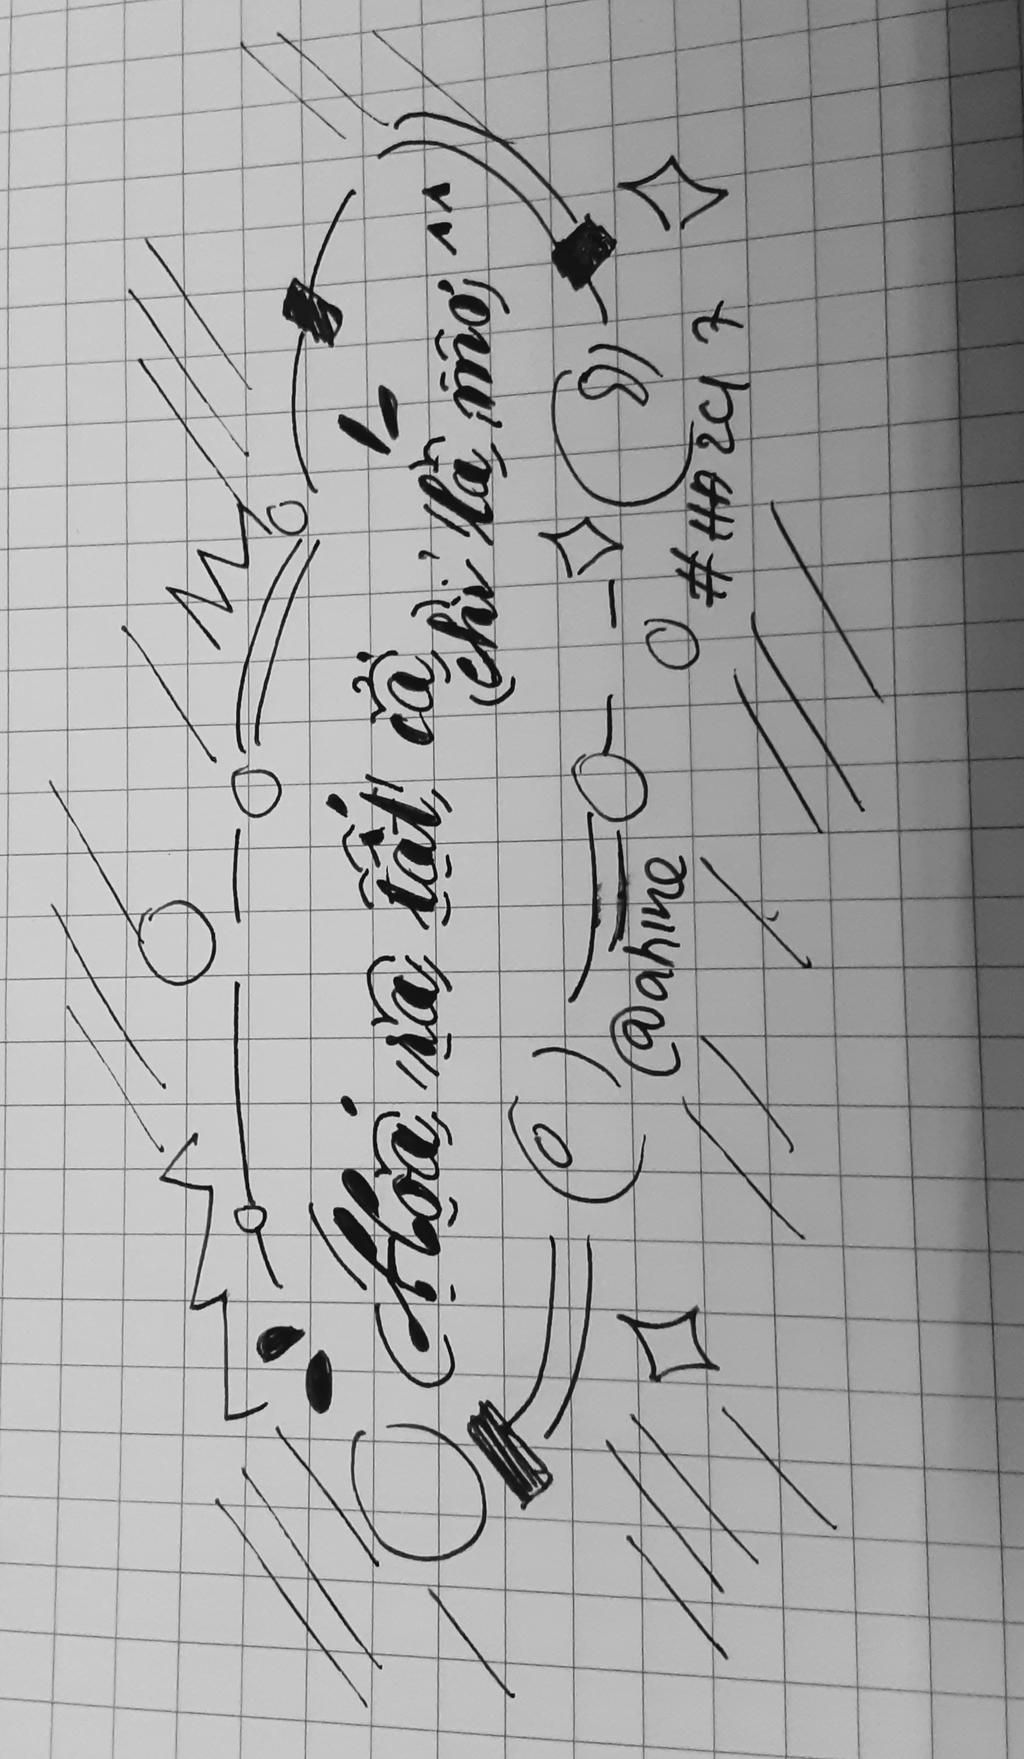 Hoá ra tất cả
chỉ là mơ, ^^
@ahine
#HA2C17